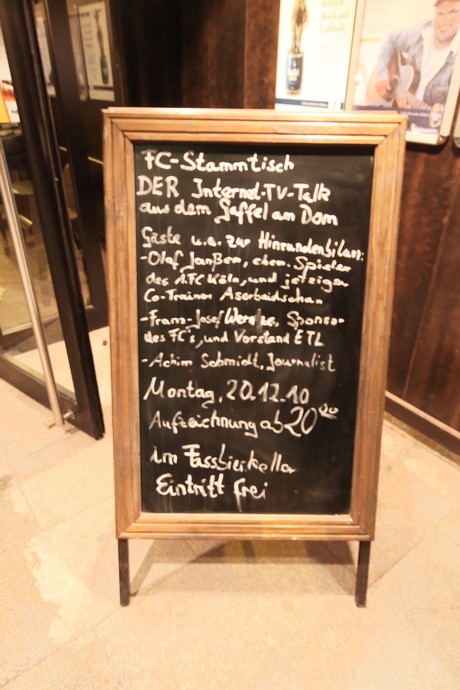 FC-Stammtisch
DER Internet-TV-Talk
aus dem Gaffel am Dom
Gäste u.a. zur Hinrundenbilanz:
-Olaf Janßen, ehem. Spieler
des 1.FC Köln, und jetziger
Co-Trainer Aserbaidschan
-Franz-Josef Wernze, Sponsor
des FC's, und Vorstand ETL
-Achim Schmidt, Journalist
Montag, 20.12.10
Aufzeichnung ab 20⁰⁰
im Fassbierkeller
Eintritt frei